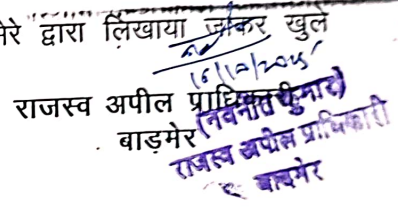 मेरे द्वारा लिखाया जाकर खुले
16/10/2025
राजस्व अपील प्राधिकारी
(नवनीत कुमार)
बाड़मेर
राजस्व अपील प्राधिकारी
बाडमेर